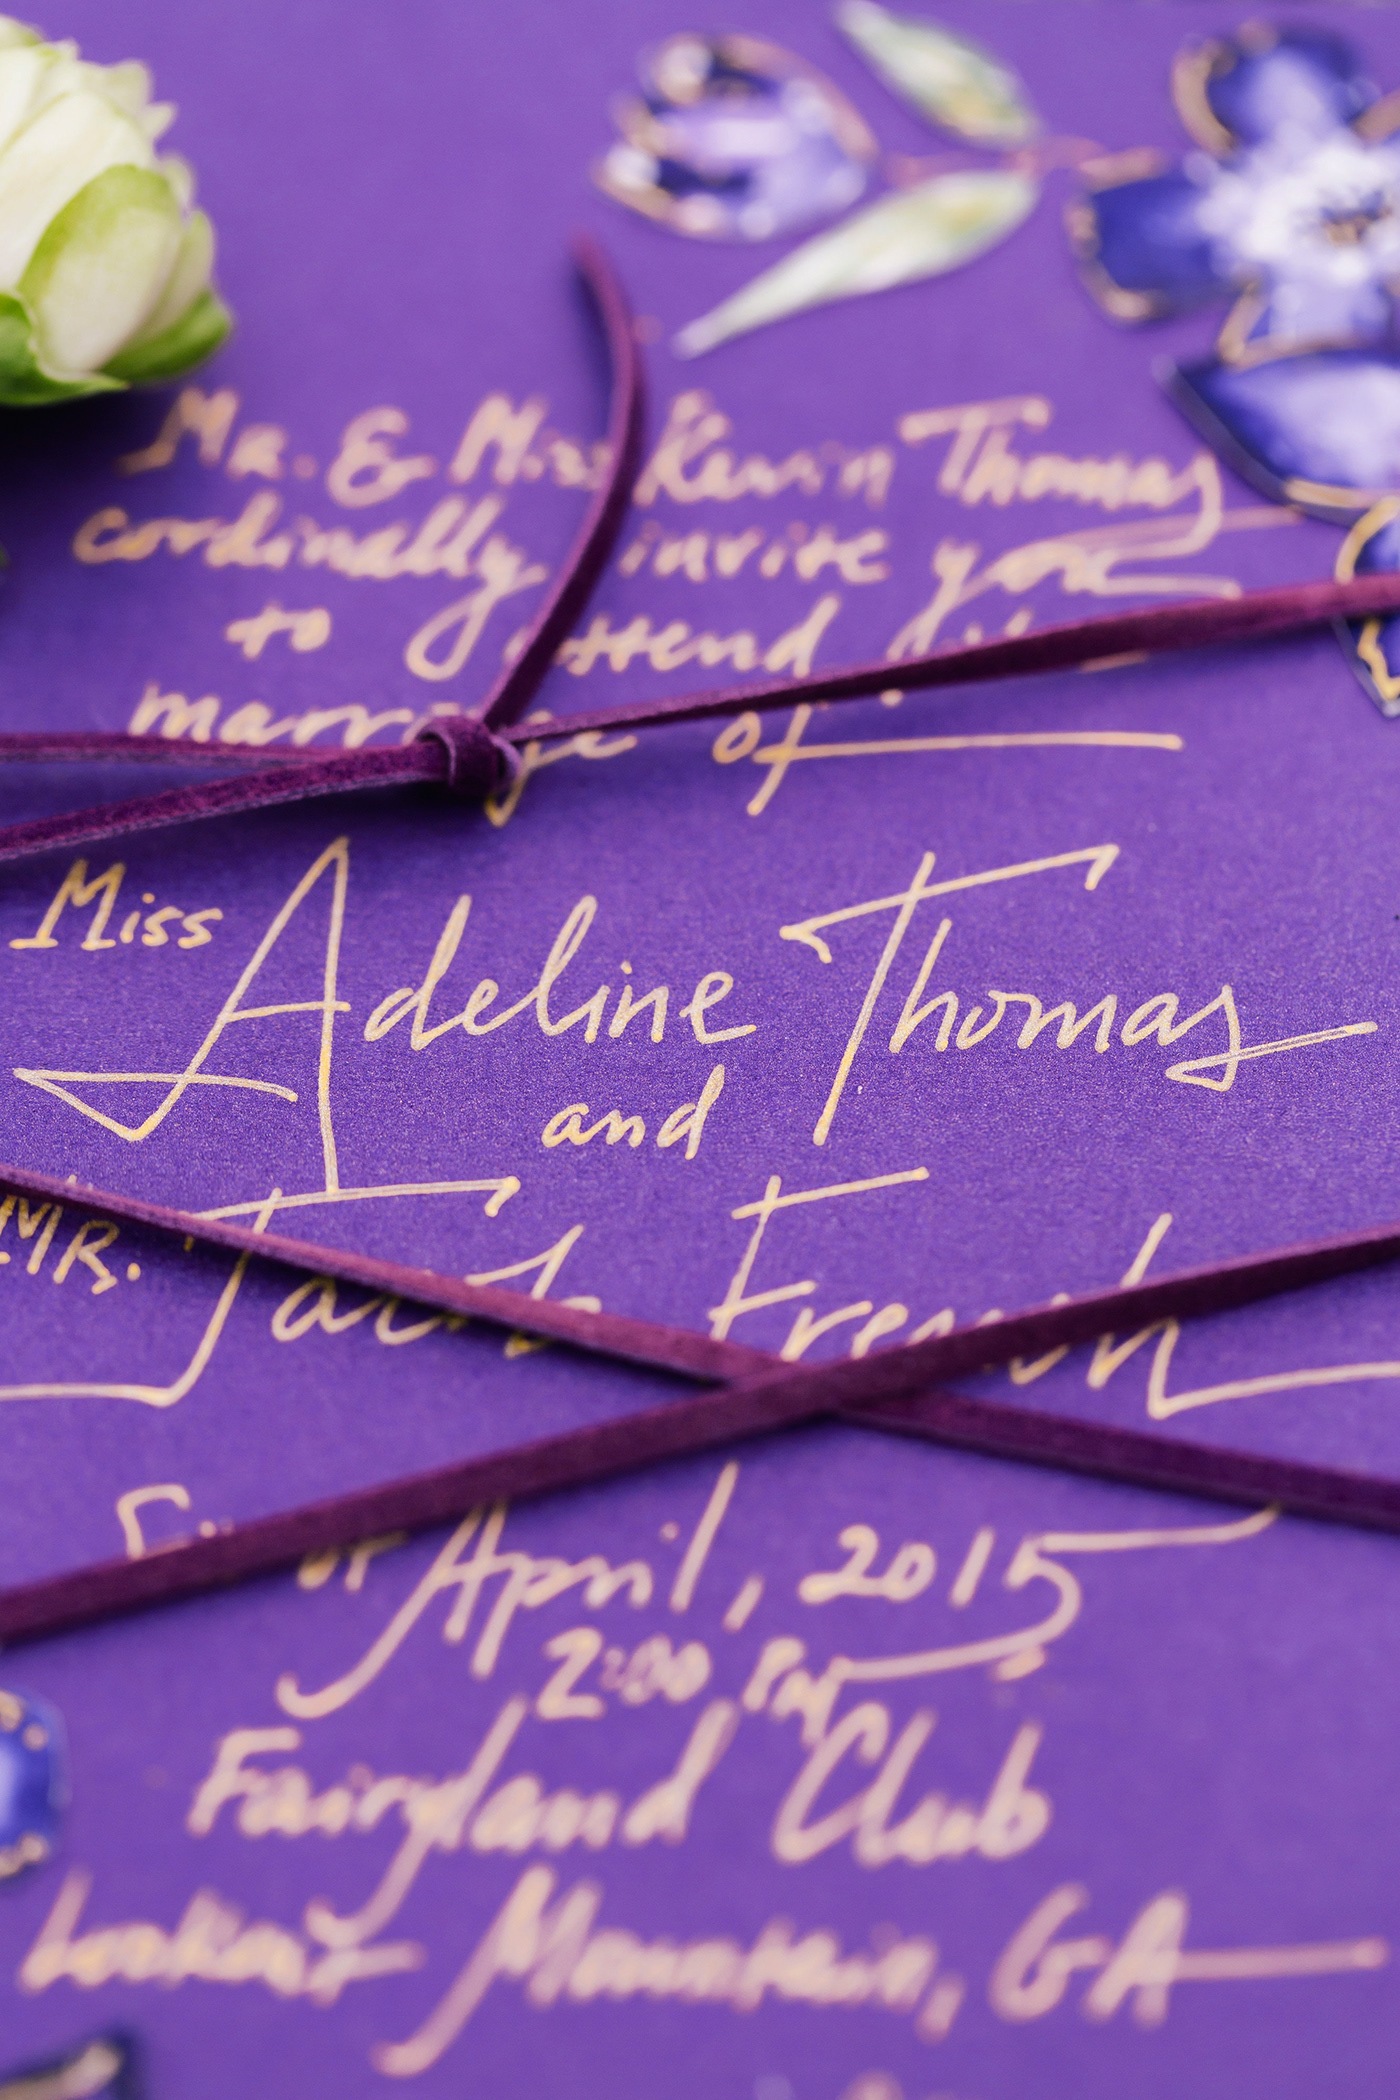 Mr. & Mrs. Kevin Thomas
cordinally invite you
to attend the
marriage of
Miss Adeline Thomas
and
MR. French
of April, 2015
2:00 PM
Fairyland Club
Lookout Mountain, GA